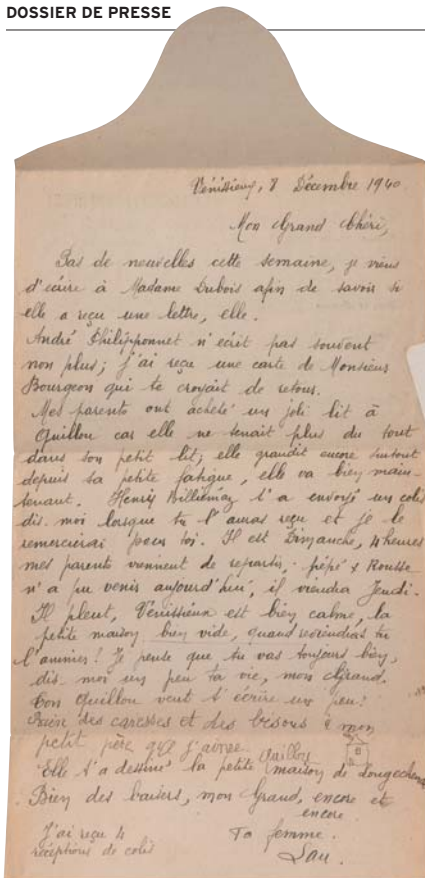 DOSSIER DE PRESSE
Vénissieux, 8 Décembre 1940
Mon Grand Chéri,
Pas de nouvelles cette semaine, je viens
d'écrire à Madame Dubois afin de savoir si
elle a reçu une lettre, elle.
André Philipponnet n'écrit pas souvent
non plus; j'ai reçu une carte de Monsieur
Bourgeon qui te croyait de retour.
Mes parents ont acheté un joli lit à
Quillou car elle ne tenait plus du tout
dans son petit lit; elle grandit encore surtout
depuis sa petite fatigue, elle va bien main-
tenant. Henris Williermoz t'a envoyé un colis
dis-moi lorsque tu l'auras reçu et je le
remercierai pour toi. Il est Dimanche, 4 heures
mes parents viennent de repartir, pépé x Rousse
n'a pu venir aujourd'hui, il viendra Jeudi.
Il pleut, Vénissieux est bien calme, la
petite maison bien vide, quand reviendras-tu
l'animer! Je pense que tu vas toujours bien,
dis-moi un peu ta vie, mon Grand.
Ton Quillou veut t'écrire un peu:
des caresses et des bésous à mon
petit père que j'aime.
Quillou
Elle t'a dessiné la petite maison de
Bien des baisers, mon Grand, encore et
encore.
J'ai reçu 4
réceptions de colis
Ta femme.
Lau.